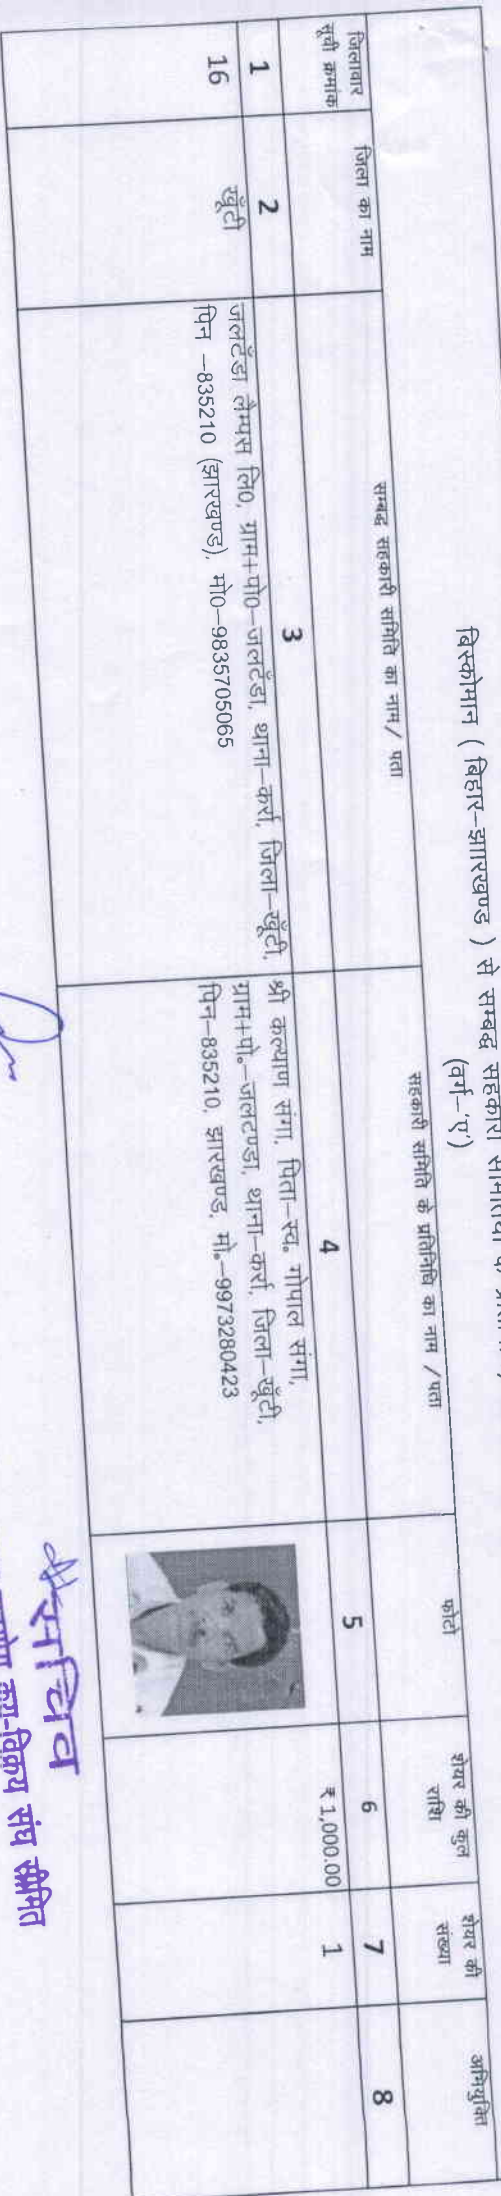 बिस्कोमान ( बिहार-झारखण्ड ) से सम्बद्ध सहकारी
(वर्ग-'ए')
जिलावार सूची क्रमांक
जिला का नाम
सम्बद्ध सहकारी समिति का नाम/ पता
सहकारी समिति के प्रतिनिधि का नाम /पता
फोटो
शेयर की कुल राशि
शेयर की संख्या
अभियुक्ति
1
2
3
4
5
6
7
8
16
खूँटी
जलटंडा लैम्पस लि0, ग्राम+पो0-जलटंडा, थाना-कर्रा, जिला-खूँटी,
पिन -835210 (झारखण्ड), मो0-9835705065
श्री कल्याण संगा, पिता-स्व. गोपाल संगा,
ग्राम+पो.-जलटण्डा, थाना-कर्रा, जिला-खूँटी,
पिन-835210, झारखण्ड, मो.-9973280423
₹ 1,000.00
1
सचिव
क्रय-विक्रय संघ सीमित